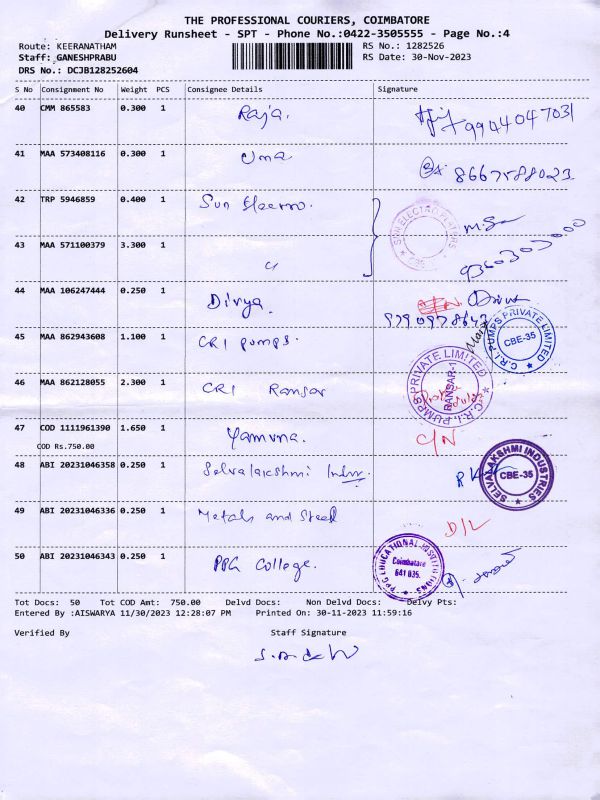 THE PROFESSIONAL COURIERS, COIMBATORE
Delivery Runsheet - SPT - Phone No.:0422-3505555 - Page No.:4
Route: KEERANATHAM RS No.: 1282526
Staff: GANESHPRABU RS Date: 30-Nov-2023
DRS No.: DCJB128252604
S No Consignment No Weight PCS Consignee Details Signature
40 CMM 865583 0.300 1 Raja. 9944047031
41 MAA 573408116 0.300 1 Uma 8667588023
42 TRP 5946859 0.400 1 Sun
SUN ELECTRO PLATERS
43 MAA 571100379 3.300 1 "
44 MAA 106247444 0.250 1 Divya.
45 MAA 862943608 1.100 1 CRI pumps.
C.R.I. PUMPS PRIVATE LIMITED
CBE-35
46 MAA 862128055 2.300 1 CRI Ransar
C.R.I. PUMPS PRIVATE LIMITED
RANSAR-1
47 COD 1111961390 1.650 1 Yamuna. C/N
COD Rs.750.00
48 ABI 20231046358 0.250 1 Selvalakshmi
SELVALAKSHMI INDUSTRIES
CBE-35
49 ABI 20231046336 0.250 1 Metals and Steel D/L
50 ABI 20231046343 0.250 1 PPG College.
PPG EDUCATIONAL INSTITUTIONS
Coimbatore
641 035.
Tot Docs: 50 Tot COD Amt: 750.00 Delvd Docs: Non Delvd Docs: Delvy Pts:
Entered By :AISWARYA 11/30/2023 12:28:07 PM Printed On: 30-11-2023 11:59:16
Verified By Staff Signature